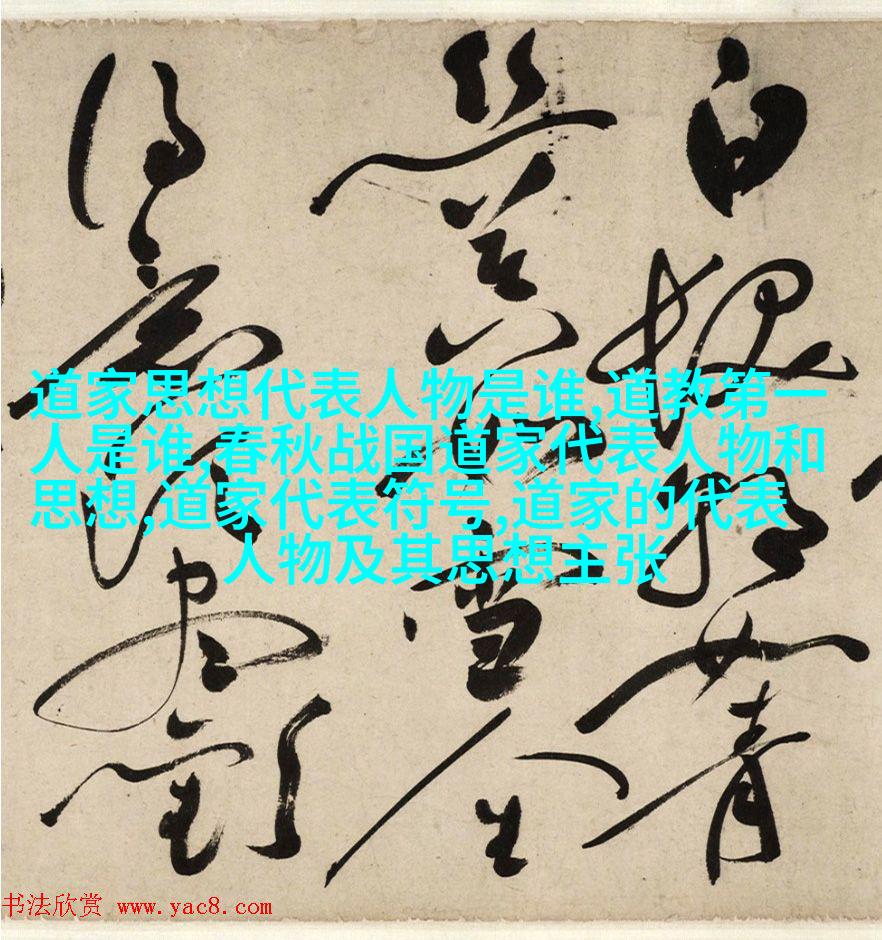 道家思想代表人物是谁,道教第一
人是谁,春秋战国道家代表人物和
思想,道家代表符号,道家的代表
人物及其思想主张
白髮朝如青
絲暮雪人生
得意須盡歡
书法欣赏 www.yac8.com